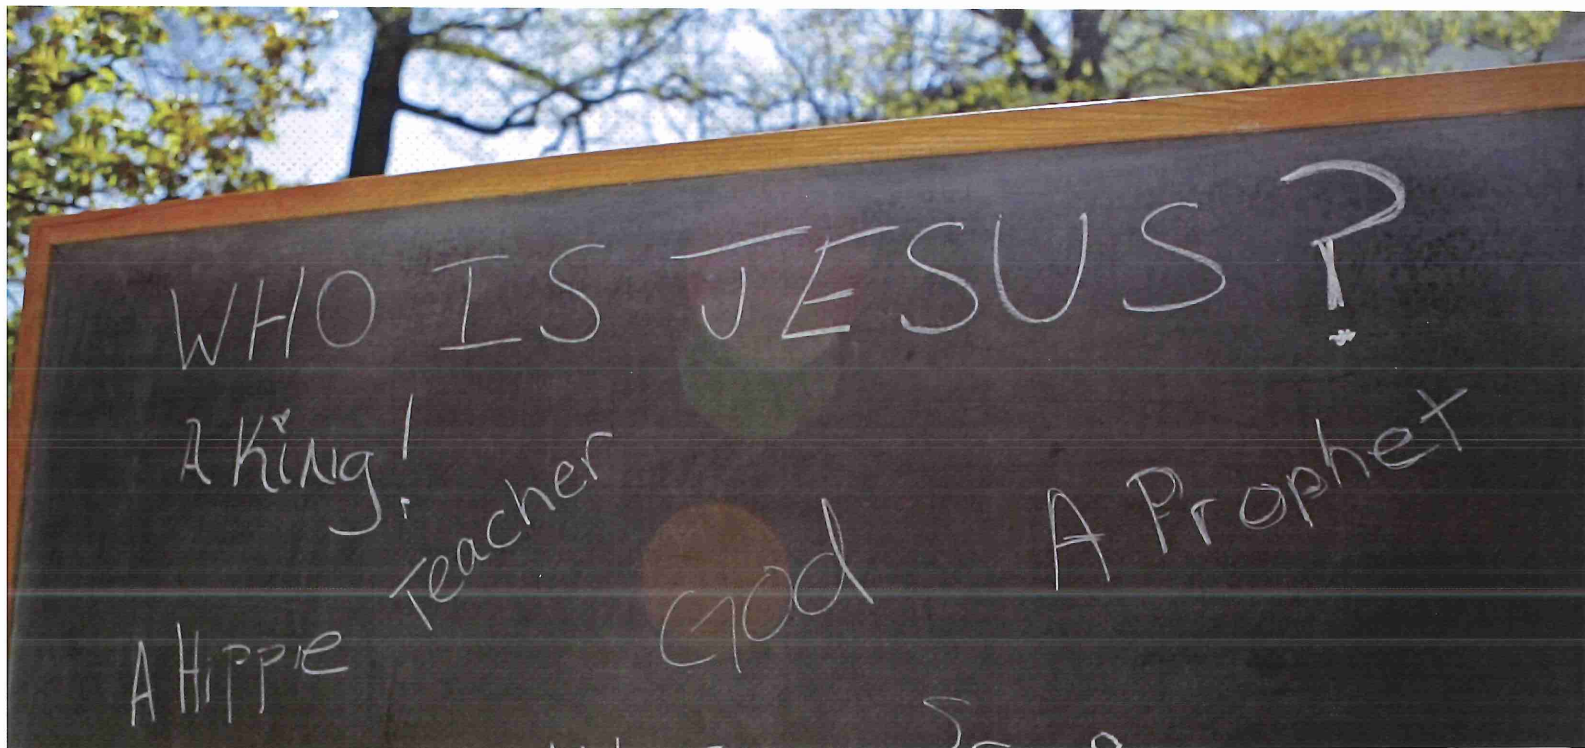 WHO IS JESUS?
A King!
Teacher
A Prophet
God
A Hippie